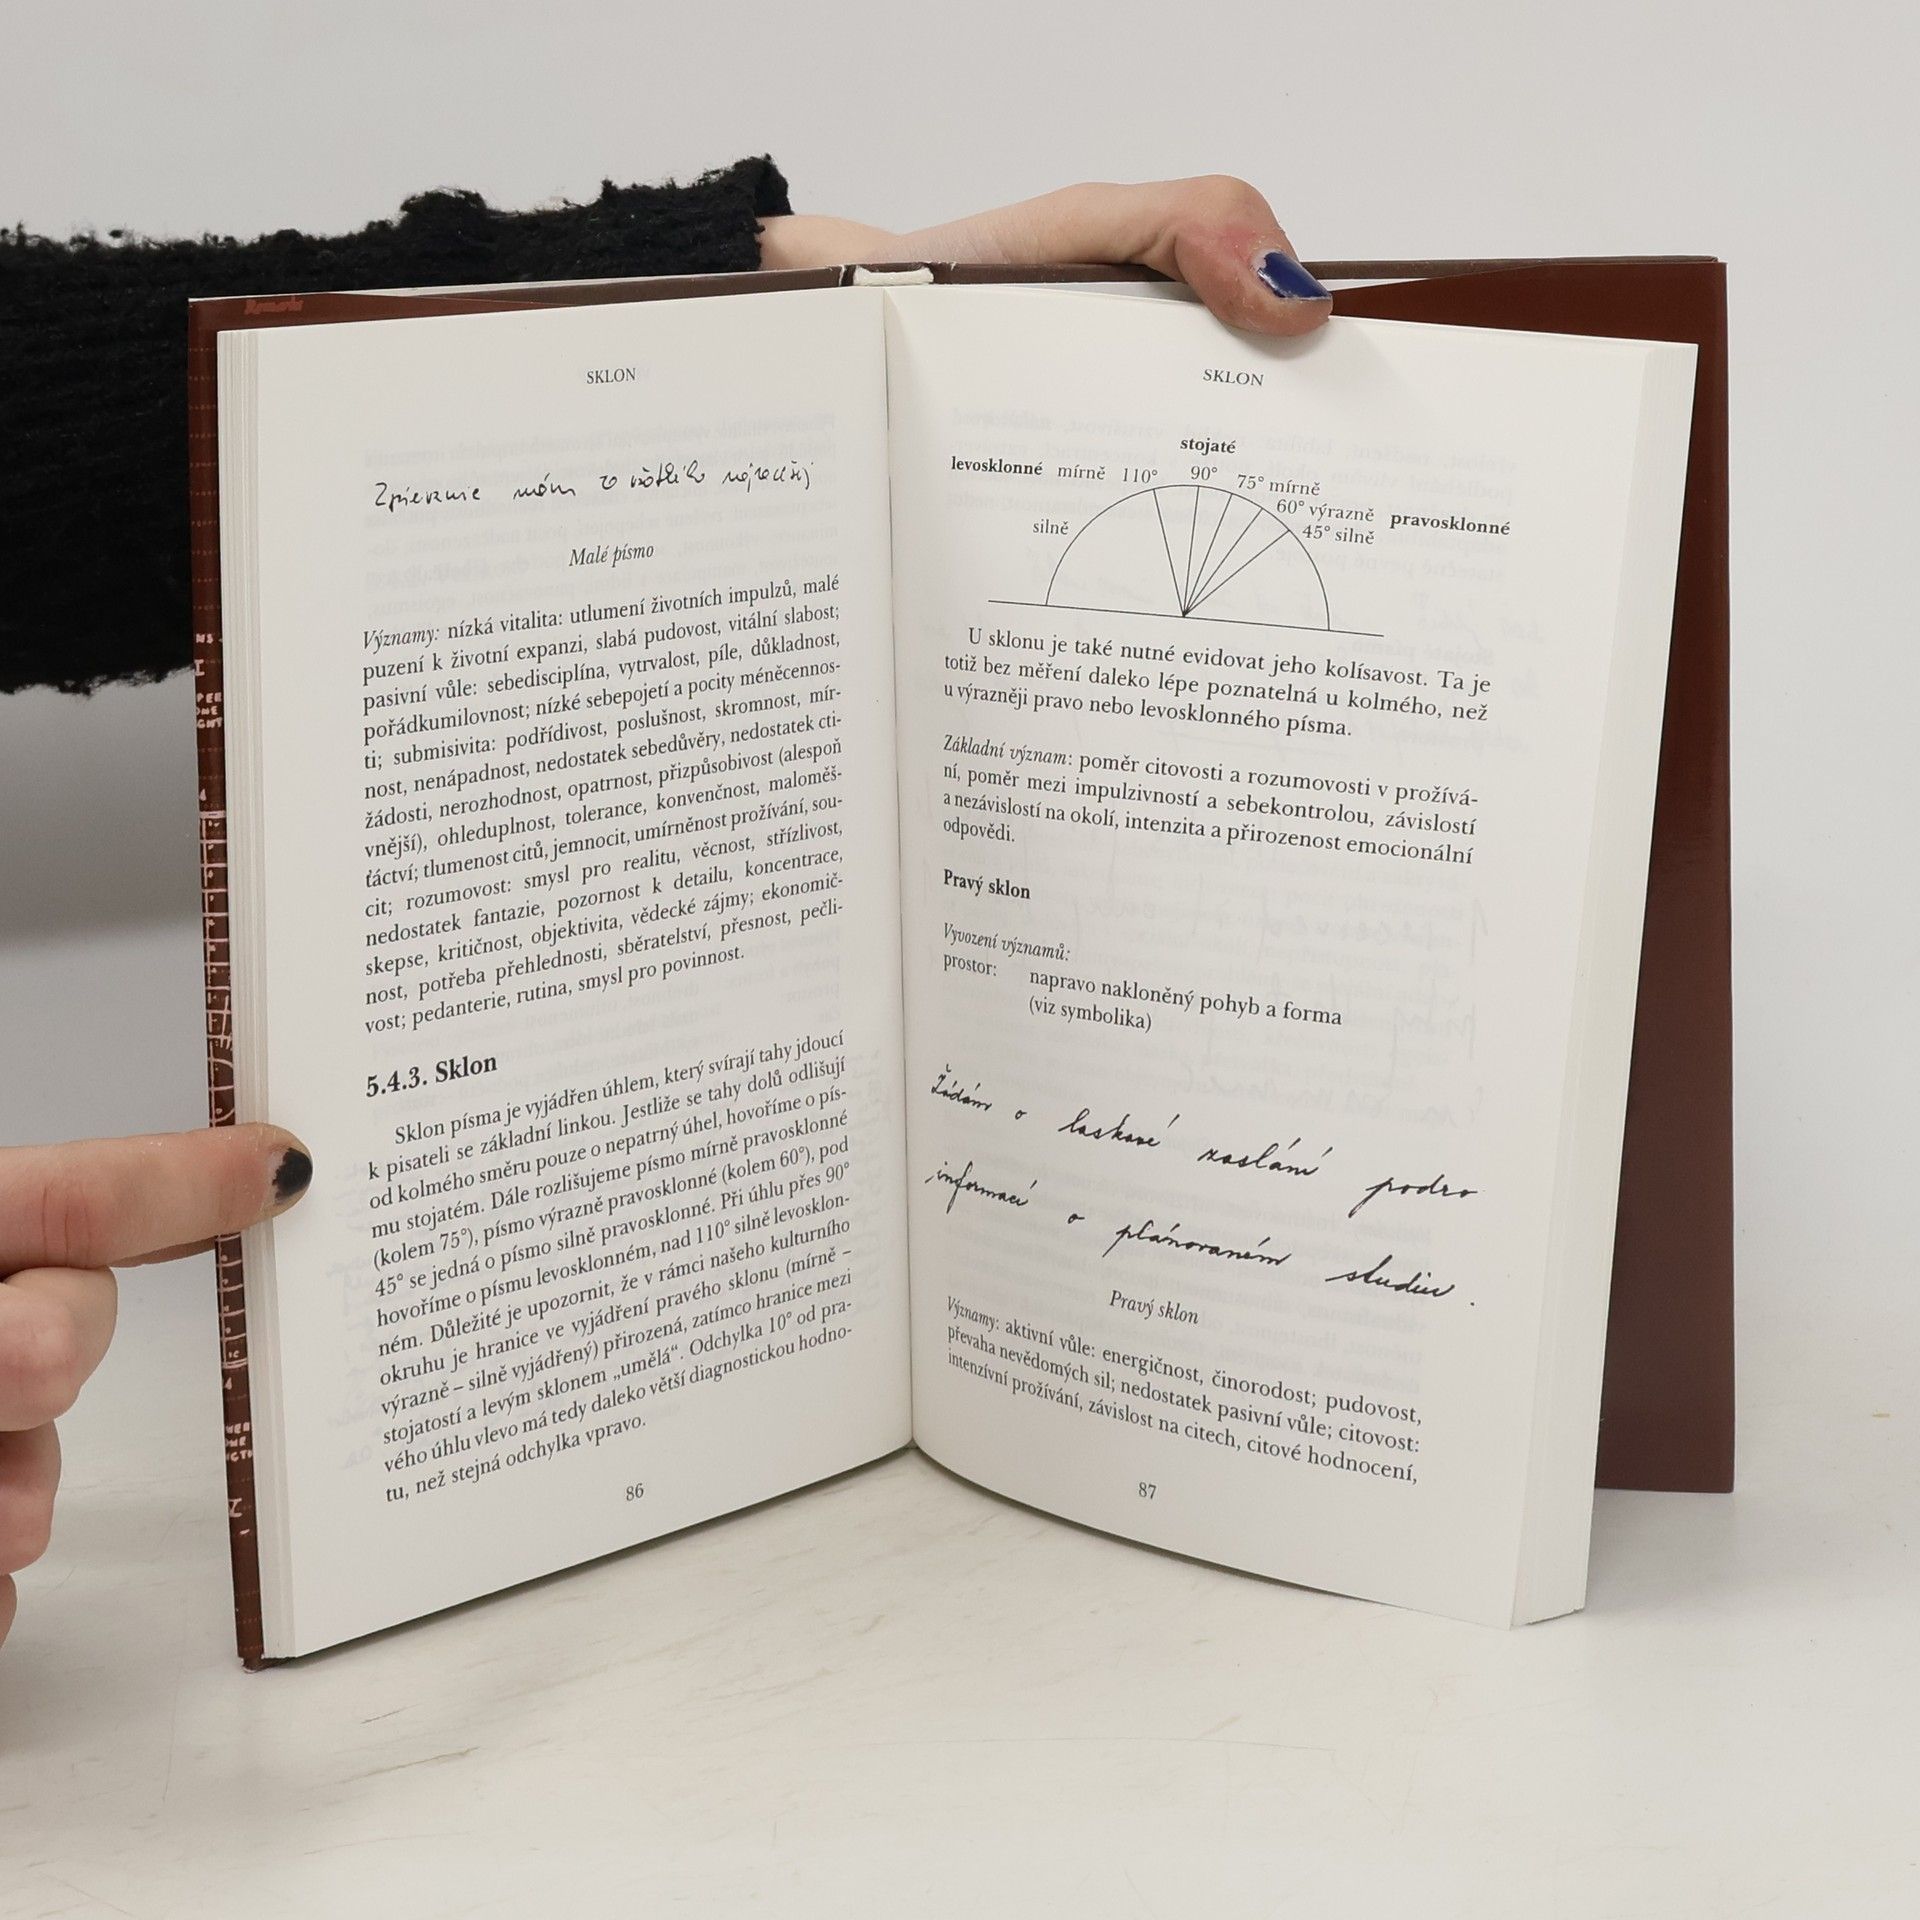 SKLON
Malé písmo
Významy: nízká vitalita: utlumení životních impulzů, malé
puzení k životní expanzi, slabá pudovost, vitální slabost;
pasivní vůle: sebedisciplína, vytrvalost, píle, důkladnost,
pořádkumilovnost; nízké sebepojetí a pocity méněcennos-
ti; submisivita: podřídivost, poslušnost, skromnost, mír-
nost, nenápadnost, nedostatek sebedůvěry, nedostatek cti-
žádosti, nerozhodnost, opatrnost, přizpůsobivost (alespoň
vnější), ohleduplnost, tolerance, konvenčnost, maloměš-
ťáctví; tlumenost citů, jemnocit, umírněnost prožívání, sou-
cit; rozumovost: smysl pro realitu, věcnost, střízlivost,
nedostatek fantazie, pozornost k detailu, koncentrace,
skepse, kritičnost, objektivita, vědecké zájmy; ekonomič-
nost, potřeba přehlednosti, sběratelství, přesnost, pečli-
vost; pedanterie, rutina, smysl pro povinnost.
5.4.3. Sklon
Sklon písma je vyjádřen úhlem, který svírají tahy jdoucí
k pisateli se základní linkou. Jestliže se tahy dolů odlišují
od kolmého směru pouze o nepatrný úhel, hovoříme o pís-
mu stojatém. Dále rozlišujeme písmo mírně pravosklonné
(kolem 75°), písmo výrazně pravosklonné (kolem 60°), pod
45° se jedná o písmo silně pravosklonné. Při úhlu přes 90°
hovoříme o písmu levosklonném, nad 110° silně levosklon-
ném. Důležité je upozornit, že v rámci našeho kulturního
okruhu je hranice ve vyjádření pravého sklonu (mírně –
výrazně – silně vyjádřený) přirozená, zatímco hranice mezi
stojatostí a levým sklonem „umělá“. Odchylka 10° od pra-
vého úhlu vlevo má tedy daleko větší diagnostickou hodno-
tu, než stejná odchylka vpravo.
86
SKLON
stojaté
levosklonné mírně 110° 90° 75° mírně
60° výrazně pravosklonné
silně 45° silně
U sklonu je také nutné evidovat jeho kolísavost. Ta je
totiž bez měření daleko lépe poznatelná u kolmého, než
u výrazněji pravo nebo levosklonného písma.
Základní význam: poměr citovosti a rozumovosti v prožívá-
ní, poměr mezi impulzivností a sebekontrolou, závislostí
a nezávislostí na okolí, intenzita a přirozenost emocionální
odpovědi.
Pravý sklon
Vyvození významů:
prostor: napravo nakloněný pohyb a forma
(viz symbolika)
Žádám o laskavé zaslání podro
informací o plánovaném studiu.
Pravý sklon
Významy: aktivní vůle: energičnost, činorodost; pudovost,
převaha nevědomých sil; nedostatek pasivní vůle; citovost:
intenzívní prožívání, závislost na citech, citové hodnocení,
87